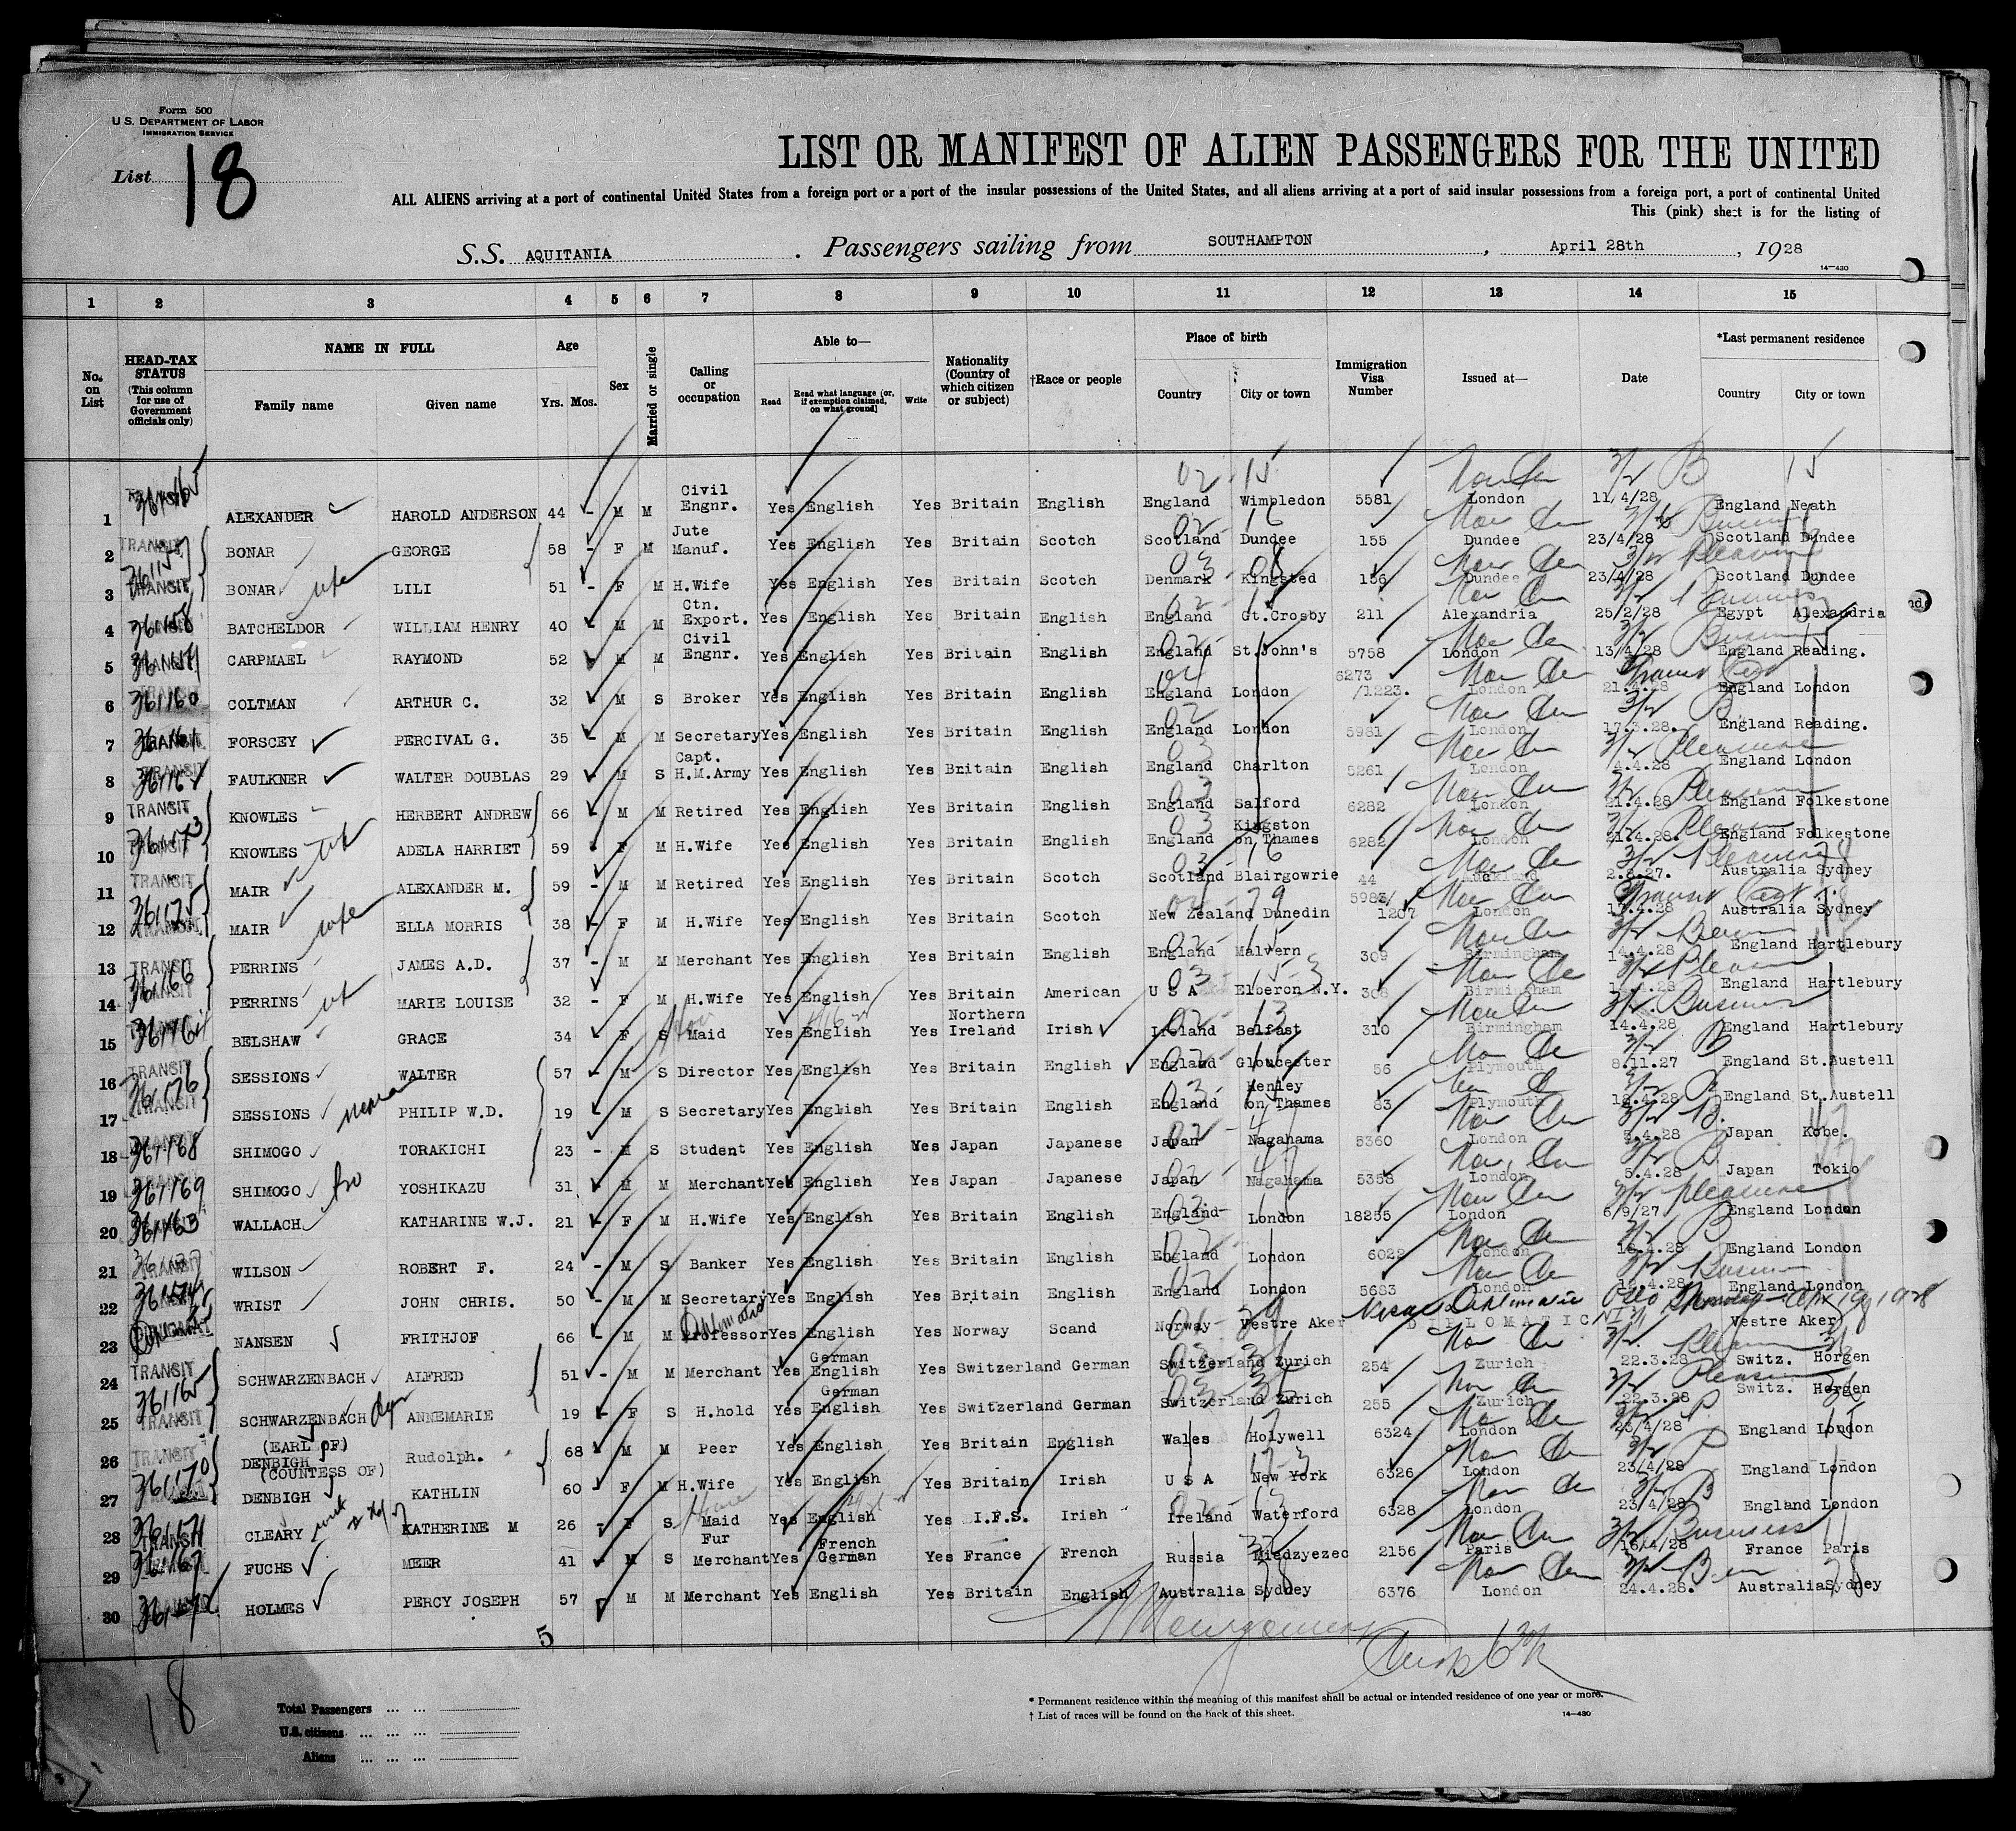 Form 500
U.S. DEPARTMENT OF LABOR
IMMIGRATION SERVICE
List 18
LIST OR MANIFEST OF ALIEN PASSENGERS FOR THE UNITED
ALL ALIENS arriving at a port of continental United States from a foreign port or a port of the insular possessions of the United States, and all aliens arriving at a port of said insular possessions from a foreign port, a port of continental United
This (pink) sheet is for the listing of
S.S. AQUITANIA. Passengers sailing from SOUTHAMPTON, April 28th, 1928
14—430
1 2 3 4 5 6 7 8 9 10 11 12 13 14 15
No. on List
HEAD-TAX STATUS (This column for use of Government officials only)
NAME IN FULL Family name Given name
Age Yrs. Mos.
Sex
Married or single
Calling or occupation
Able to— Read Read what language (or, if exemption claimed, on what ground) Write
Nationality (Country of which citizen or subject)
†Race or people
Place of birth Country City or town
Immigration Visa Number
Issued at—
Date
*Last permanent residence Country City or town
1 ALEXANDER HAROLD ANDERSON 44 - M M Civil Engnr. Yes English Yes Britain English England Wimbledon 5581 London 11/4/28 England Neath
2 TRANSIT BONAR GEORGE 58 - F M Jute Manuf. Yes English Yes Britain Scotch Scotland Dundee 155 Dundee 23/4/28 Scotland Dundee
3 TRANSIT BONAR wife LILI 51 - F M H.Wife Yes English Yes Britain Scotch Denmark Kingsted 156 Dundee 23/4/28 Scotland Dundee
4 BATCHELDOR WILLIAM HENRY 40 - M M Ctn. Export. Yes English Yes Britain English England Gt.Crosby 211 Alexandria 25/2/28 Egypt Alexandria
5 CARPMAEL RAYMOND 52 M M Civil Engnr. Yes English Yes Britain English England St.John's 5758 London 13/4/28 England Reading.
6 361160 COLTMAN ARTHUR C. 32 - M S Broker Yes English Yes Britain English England London 6273/1223. London 21.4.28 England London
7 FORSCEY PERCIVAL G. 35 - M M Secretary Yes English Yes Britain English England London 5981 London 17.3.28. England Reading.
8 FAULKNER WALTER DOUBLAS 29 - M S Capt. H.M.Army Yes English Yes Britain English England Charlton 5261 London 4.4.28 England London
9 TRANSIT KNOWLES HERBERT ANDREW 66 M M Retired Yes English Yes Britain English England Salford 6282 London 21.4.28 England Folkestone
10 361173 KNOWLES wife ADELA HARRIET 59 - F M H.Wife Yes English Yes Britain English England Kingston on Thames 6282 London 21.4.28. England Folkestone
11 TRANSIT MAIR ALEXANDER M. 59 - M M Retired Yes English Yes Britain Scotch Scotland Blairgowrie 44 Auckland 2.8.27. Australia Sydney
12 361175 MAIR wife ELLA MORRIS 38 - F M H.Wife Yes English Yes Britain Scotch New Zealand Dunedin 5983/1207 London 17.4.28 Australia Sydney
13 TRANSIT PERRINS JAMES A.D. 37 - M M Merchant Yes English Yes Britain English England Malvern 309 Birmingham 14.4.28 England Hartlebury
14 361166 PERRINS wife MARIE LOUISE 32 - F M H.Wife Yes English Yes Britain American U S A Elberon N.Y. 308 Birmingham England Hartlebury
15 BELSHAW GRACE 34 F S Maid Yes English Yes Northern Ireland Irish Ireland Belfast 310 Birmingham 14.4.28 England Hartlebury
16 TRANSIT SESSIONS WALTER 57 - M S Director Yes English Yes Britain English England Gloucester 56 Plymouth 8.11.27 England St.Austell
17 361176 SESSIONS nephew PHILIP W.D. 19 M S Secretary Yes English Yes Britain English England Henley on Thames 83 Plymouth England St.Austell
18 361168 SHIMOGO TORAKICHI 23 - M S Student Yes English Yes Japan Japanese Japan Nagahama 5360 London 5.4.28 Japan Kobe.
19 361169 SHIMOGO bro YOSHIKAZU 31 M M Merchant Yes English Yes Japan Japanese Japan Nagahama 5358 London 5.4.28 Japan Tokio
20 361163 WALLACH KATHARINE W.J. 21 - F M H.Wife Yes English Yes Britain English England London 18255 London 6/9/27 England London
21 WILSON ROBERT F. 24 - M S Banker Yes English Yes Britain English England London 6022 London England London
22 WRIST JOHN CHRIS. 50 - M M Secretary Yes English Yes Britain English England London 5683 London England London
23 NANSEN FRITHJOF 66 - M M Professor Yes English Yes Norway Scand Norway Vestre Aker DIPLOMATIC Vestre Aker
24 TRANSIT SCHWARZENBACH ALFRED 51 - M M Merchant Yes German English Yes Switzerland German Switzerland Zurich 254 Zurich 22.3.28 Switz. Horgen
25 361165 TRANSIT SCHWARZENBACH ANNEMARIE 19 - F S H.hold Yes German English Yes Switzerland German Switzerland Zurich 255 Zurich 22.3.28 Switz. Horgen
26 TRANSIT (EARL OF) DENBIGH Rudolph. 68 M M Peer Yes English Yes Britain English Wales Holywell 6324 London 23/4/28 England London
27 361170 (COUNTESS OF) DENBIGH KATHLIN 60 F M H.Wife Yes English Yes Britain Irish U S A New York 6326 London 23/4/28 England London
28 361171 CLEARY KATHERINE M 26 - F S Maid Yes English Yes I.F.S. Irish Ireland Waterford 6328 London 23/4/28 England London
29 FUCHS MEER 41 M S Fur Merchant Yes French German Yes France French Russia Miedzyezec 2156 Paris 16/4/28 France Paris
30 HOLMES PERCY JOSEPH 57 M M Merchant Yes English Yes Britain English Australia Sydney 6376 London 24.4.28. Australia Sydney
5
18
Total Passengers ... ...
U.S. citizens ... ... ...
Aliens ... ... ...
* Permanent residence within the meaning of this manifest shall be actual or intended residence of one year or more.
† List of races will be found on the back of this sheet.
14—430